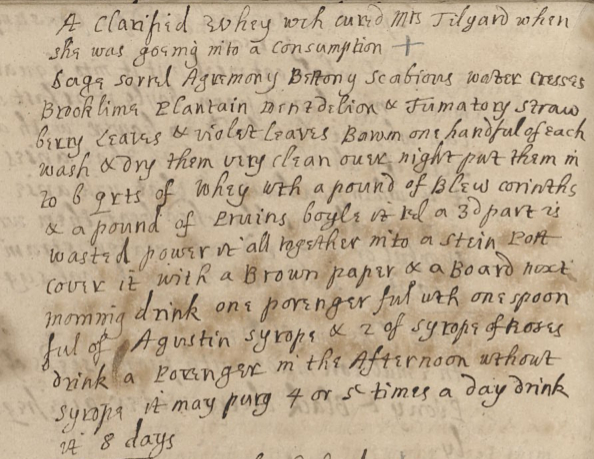 A Clarified Whey wch cured Mrs Tilyard when
she was goeing into a consumption +
Sage sorrel Agremony Bettony Scabious water cresses
Brooklime Plantain Dendelion & Fumatory straw
berry Leaves & violet Leaves Bawm one handful of each
wash & dry them very clean over night put them in
to 6 qrts of Whey wth a pound of Blew corinths
& a pound of Pruins boyle it til a 3d part is
wasted power it all together into a stein Pott
cover it with a Brown paper & a Board next
morning drink one porenger ful wth one spoon
ful of Agustin Syrope & 2 of Syrope of Roses
drink a Porenger in the Afternoon without
syrope it may purg 4 or 5 times a day drink
it 8 days